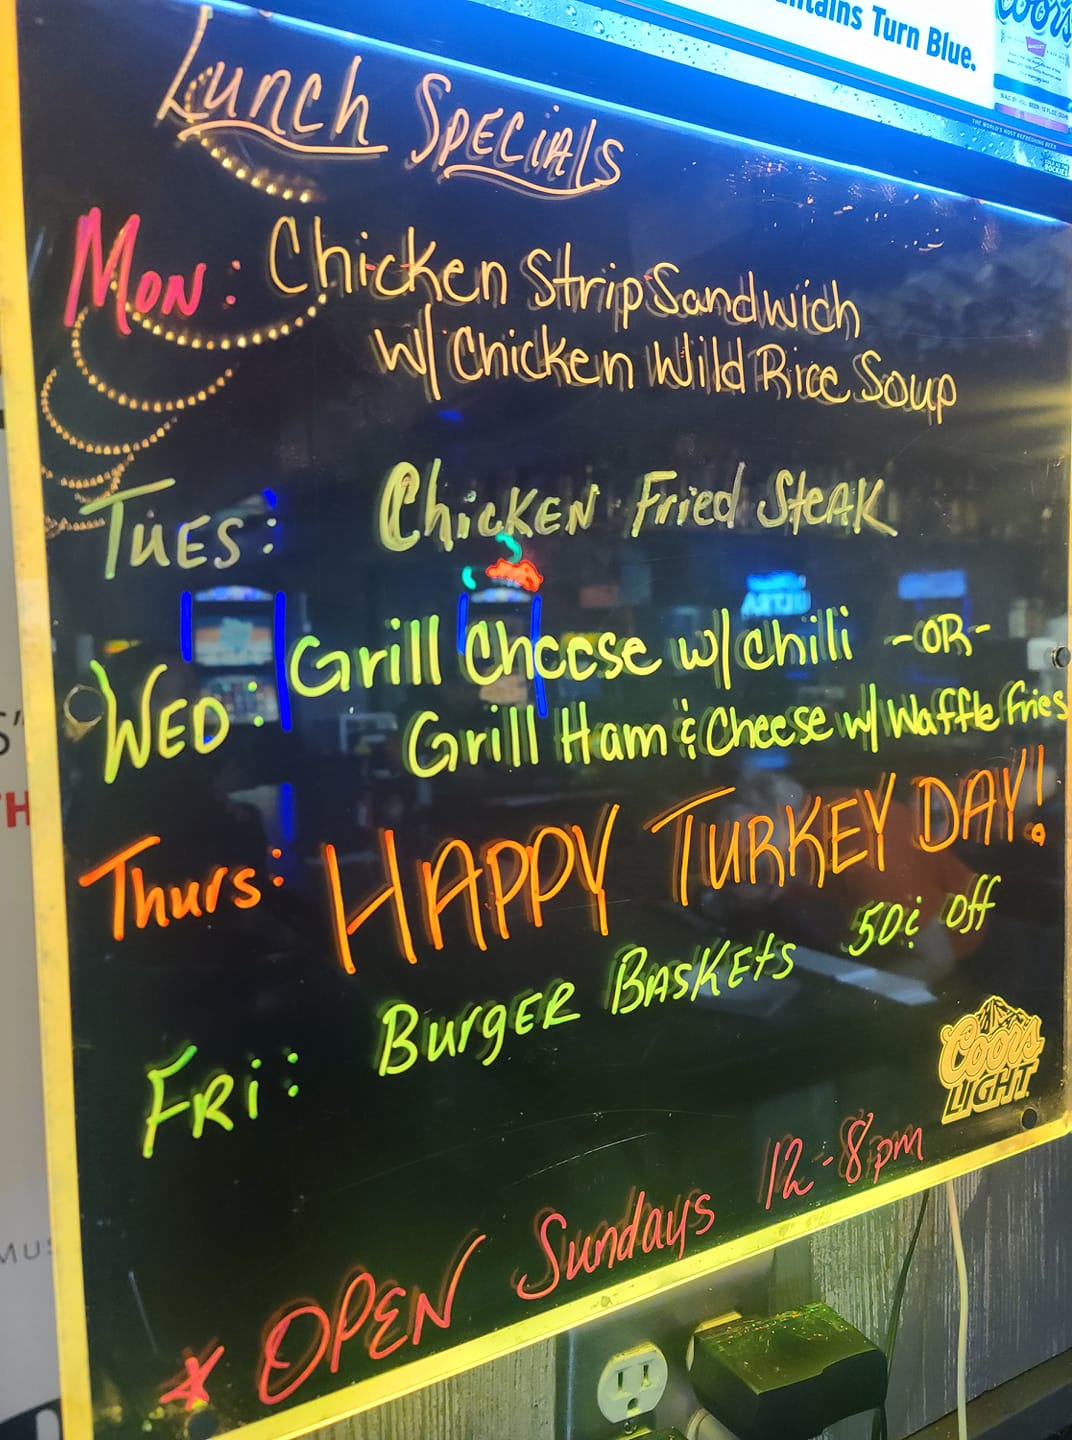 ntains Turn Blue.
Coors
THE WORLD'S MOST REFRESHING BEER
Lunch Specials
Mon: Chicken Strip Sandwich
w/ Chicken Wild Rice Soup
Tues: Chicken Fried Steak
Wed: Grill Cheese w/ chili -OR-
Grill Ham & Cheese w/ Waffle Fries
Thurs: HAPPY TURKEY DAY!
Fri: Burger Baskets 50¢ off
Coors
LIGHT
* OPEN Sundays 12-8pm